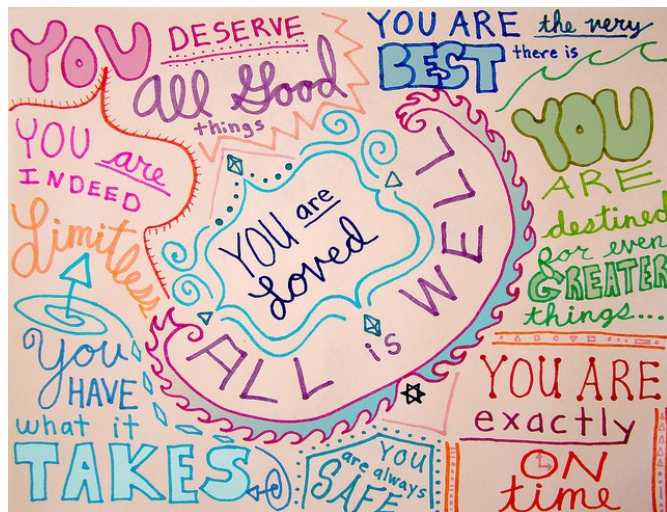 YOU DESERVE
all Good
things
YOU ARE the very
BEST there is
YOU are
INDEED
Limitless
YOU are
Loved
ALL is WELL
YOU
ARE
destined
for even
GREATER
things...
You
HAVE
what it
TAKES
YOU
are always
SAFE
YOU ARE
exactly
ON
time